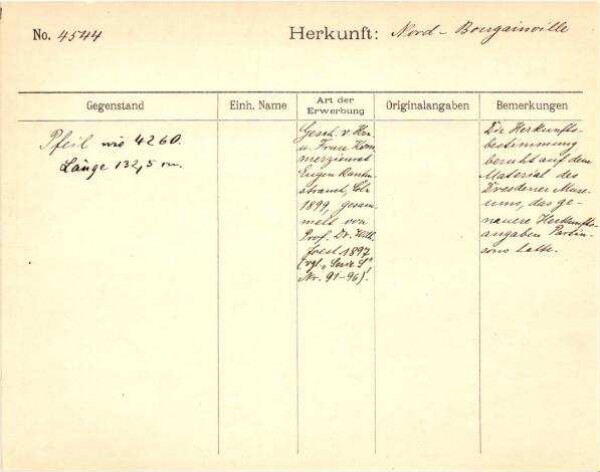 No. 4544
Herkunft: Nord-Bougainville
Gegenstand
Einh. Name
Art der Erwerbung
Originalangaben
Bemerkungen
Pfeil wie 4260.
Länge 132,5 cm.
Gesch. v. Hrn.
u. Frau Kom-
merzienrat
Eugen Rauten-
strauch, Cöln
1899, gesam-
melt von
Prof. Dr. Wilh.
Joest 1897
(vgl. "Serie S"
Nr. 91-96)!
Die Herkunfts-
bestimmung
beruht auf dem
Material des
Dresdener Muse-
ums, das ge-
nauere Herkunfts-
angaben Parkin-
sons hatte.